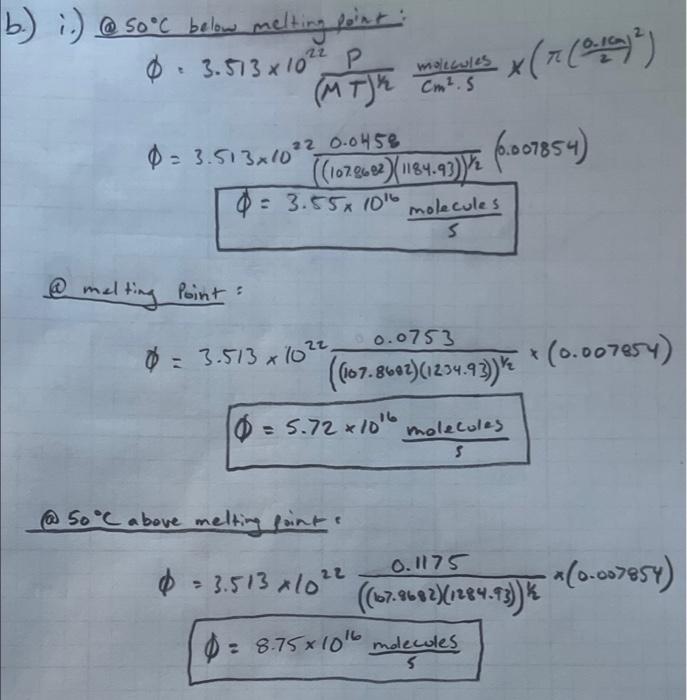 b.) i.) @ 50°C below melting point:
ϕ = 3.513 × 10²² P/(MT)^½ molecules/cm²·s × (π(0.1cm/2)²)
ϕ = 3.513×10²² 0.0458/((107.8682)(1184.93))^½ (0.007854)
ϕ = 3.55 × 10¹⁶ molecules/s
@ melting Point:
ϕ = 3.513 × 10²² 0.0753/((107.8682)(1234.93))^½ × (0.007854)
ϕ = 5.72 × 10¹⁶ molecules/s
@ 50°C above melting point:
ϕ = 3.513 × 10²² 0.1175/((107.8682)(1284.93))^½ × (0.007854)
ϕ = 8.75 × 10¹⁶ molecules/s